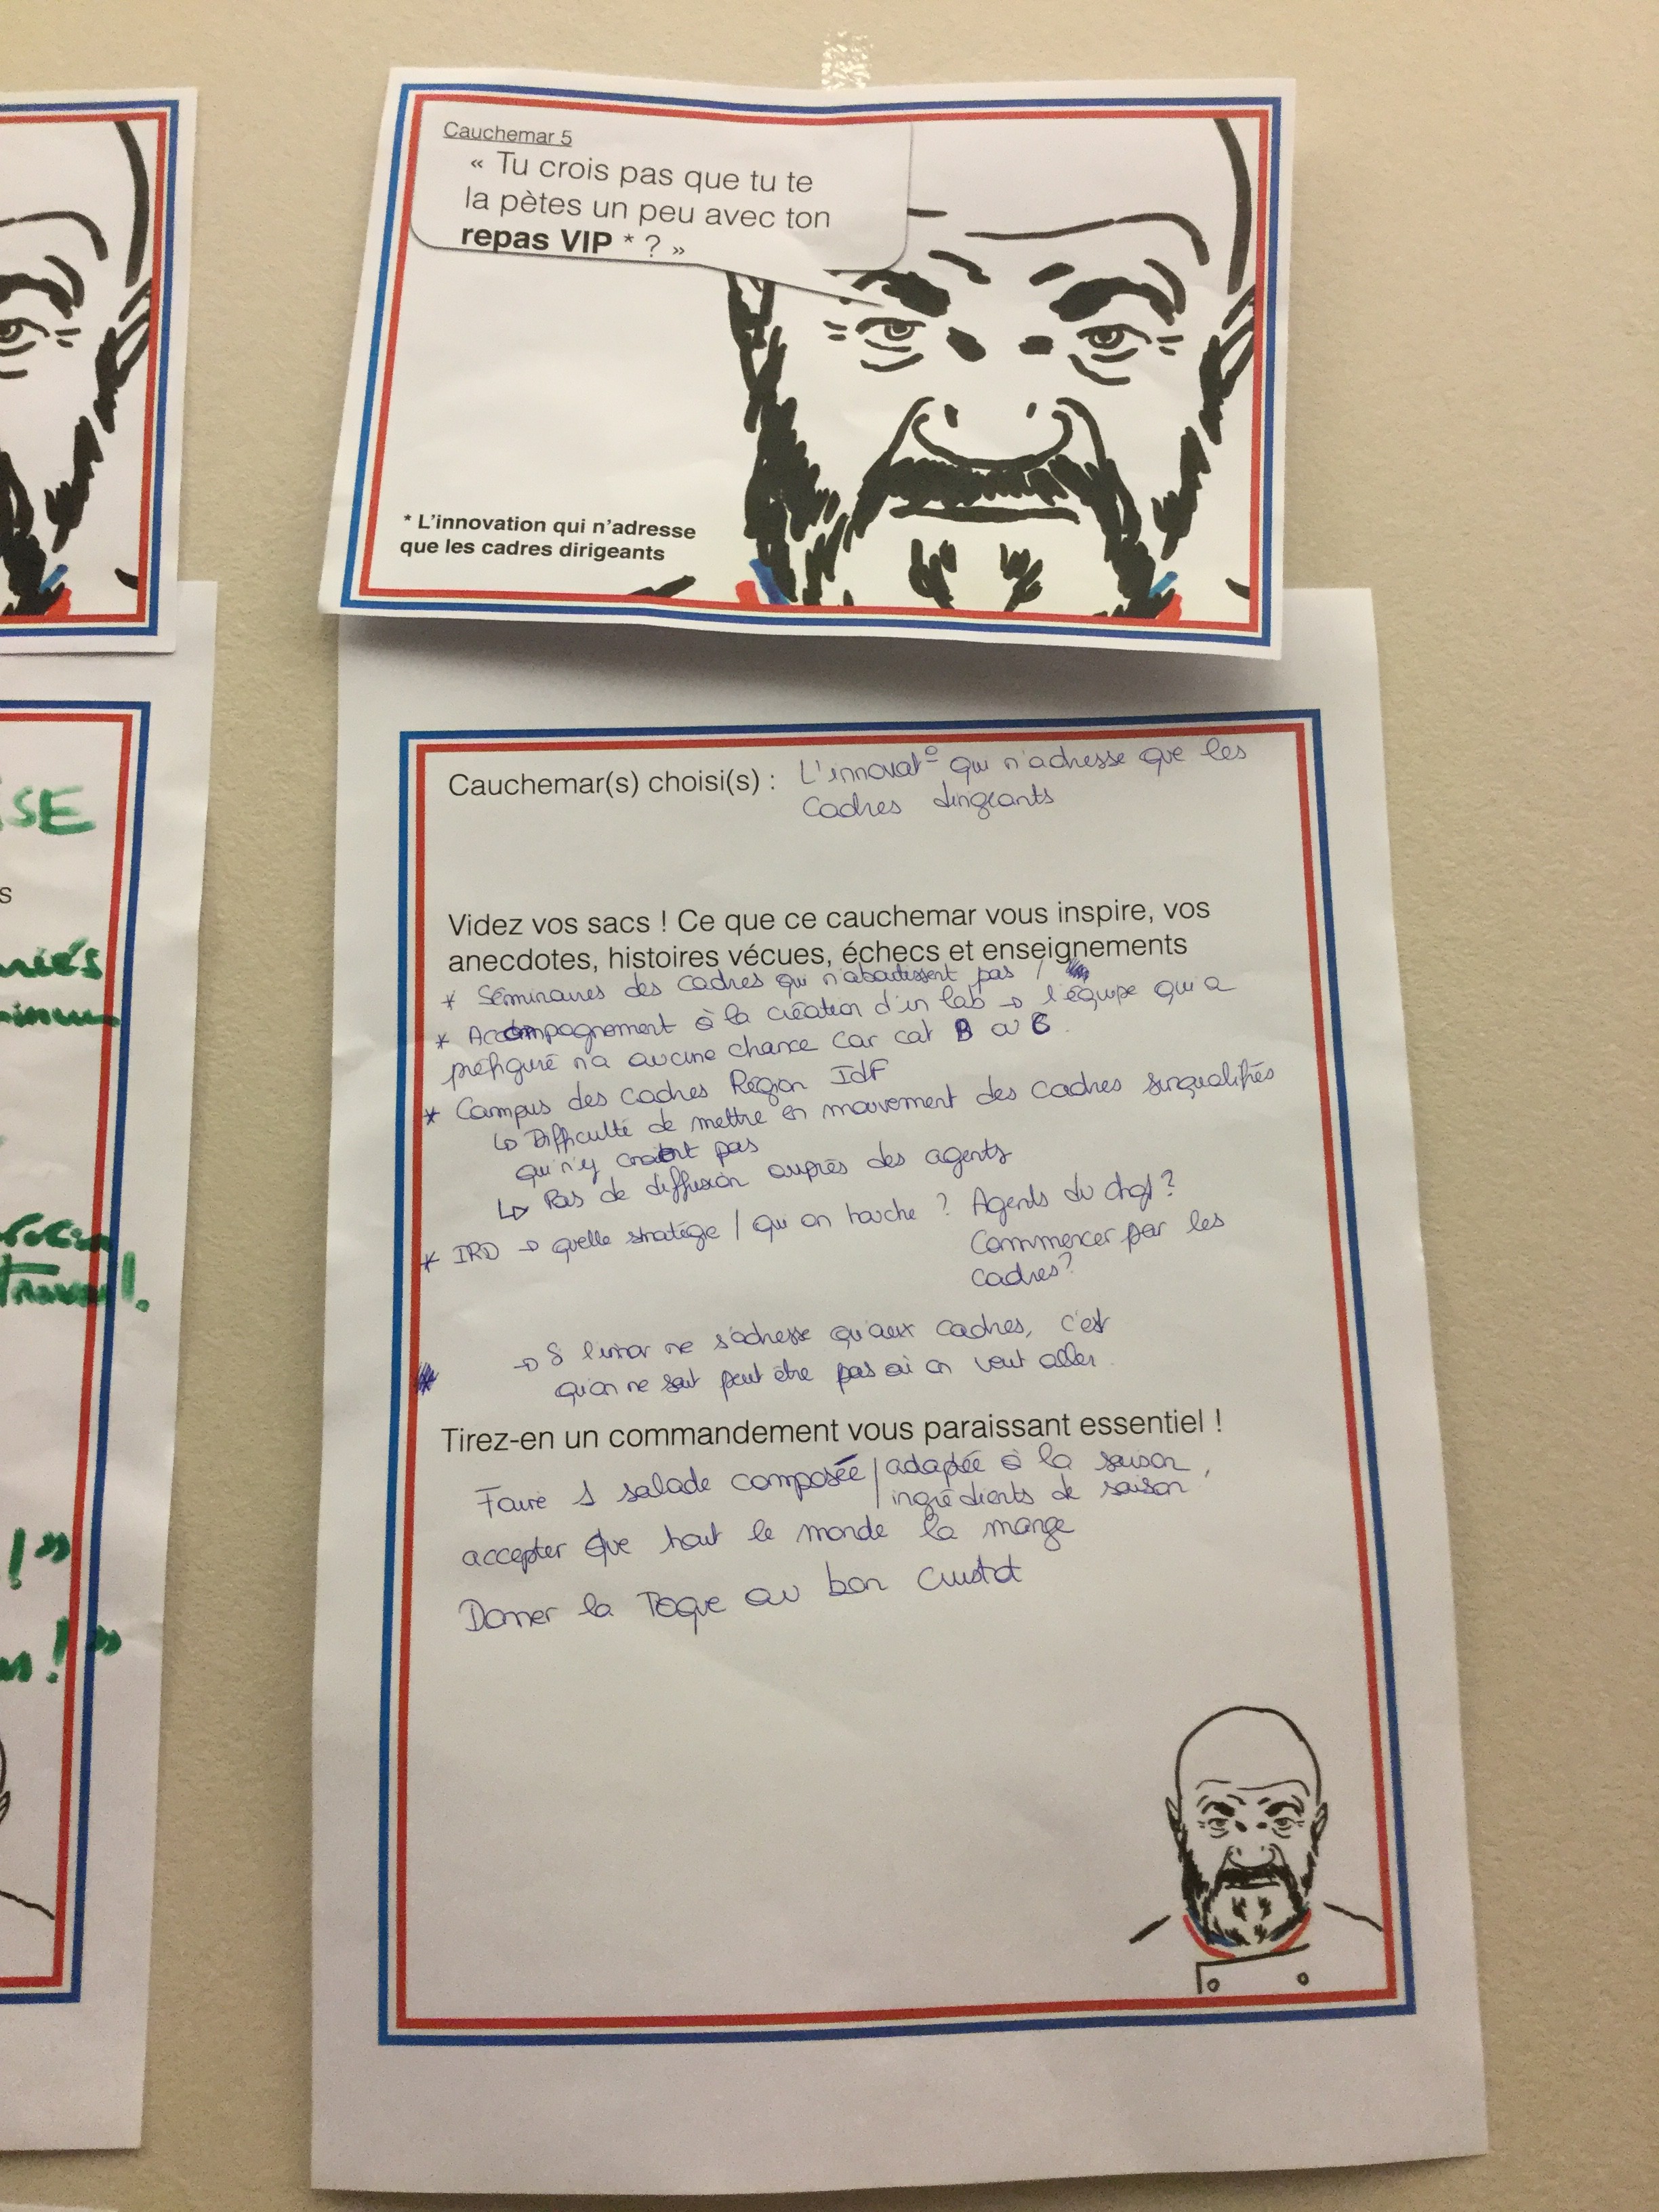 Cauchemar 5
« Tu crois pas que tu te
la pètes un peu avec ton
repas VIP * ? »
* L'innovation qui n'adresse
que les cadres dirigeants
Cauchemar(s) choisi(s) : L'innovat° qui n'adresse que les
Cadres dirigeants
Videz vos sacs ! Ce que ce cauchemar vous inspire, vos
anecdotes, histoires vécues, échecs et enseignements
* Séminaires des cadres qui n'aboutissent pas /
* Accompagnement à la création d'un lab → l'équipe qui a
préfiguré n'a aucune chance car cat B ou C.
* Campus des cadres Région IdF
↳ Difficulté de mettre en mouvement des cadres surqualifiés
qui n'y croient pas
↳ Pas de diffusion auprès des agents
* IRD → quelle stratégie / qui on touche ? Agents du chgt ?
Commencer par les
cadres ?
→ Si l'innov ne s'adresse qu'aux cadres, c'est
qu'on ne sait peut être pas où on veut aller.
Tirez-en un commandement vous paraissant essentiel !
Faire 1 salade composée / adaptée à la saison,
ingrédients de saison
accepter que tout le monde la mange
Donner la Toque au bon cuistot
ISE
s
travail.
! »
! »